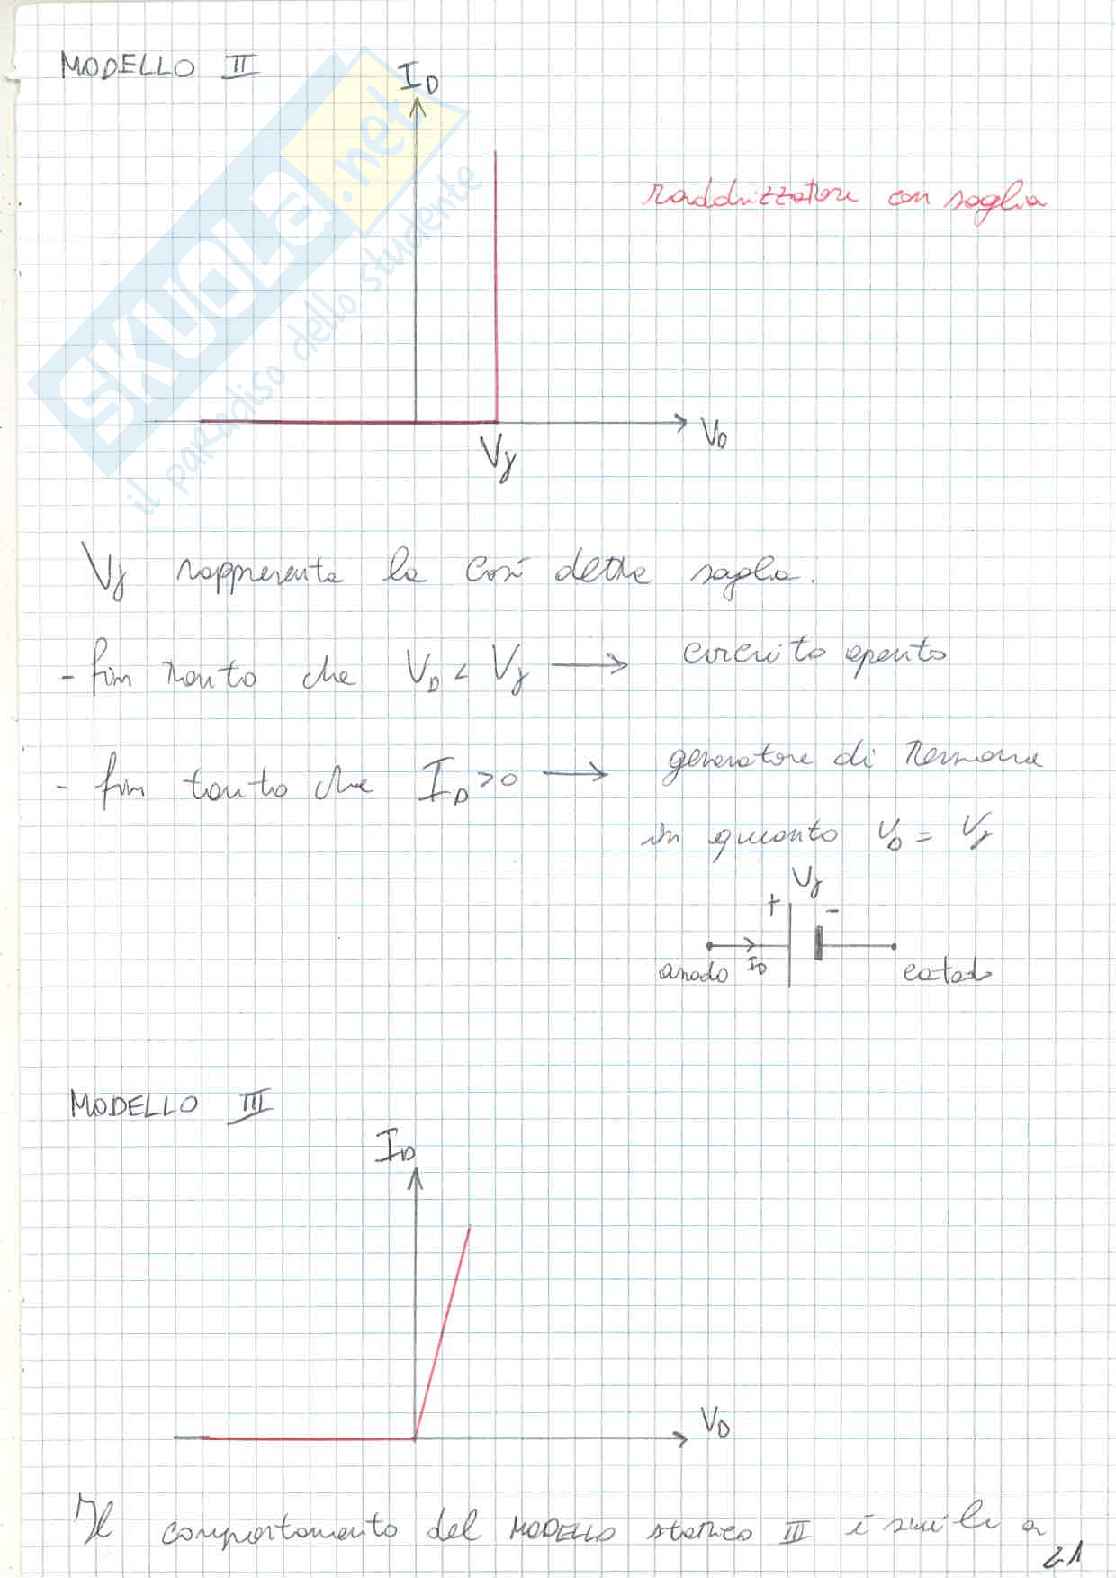 MODELLO II
I_D
raddrizzatore con soglia
SKUOLA.net
il paradiso dello studente
V_D
Vγ
Vγ rappresenta la così detta soglia.
- fin tanto che V_D < Vγ → circuito aperto
- fin tanto che I_D > 0 → generatore di tensione
in quanto V_D = Vγ
Vγ
+ -
anodo I_D catodo
MODELLO III
I_D
V_D
Il comportamento del MODELLO statico III è simile a
21